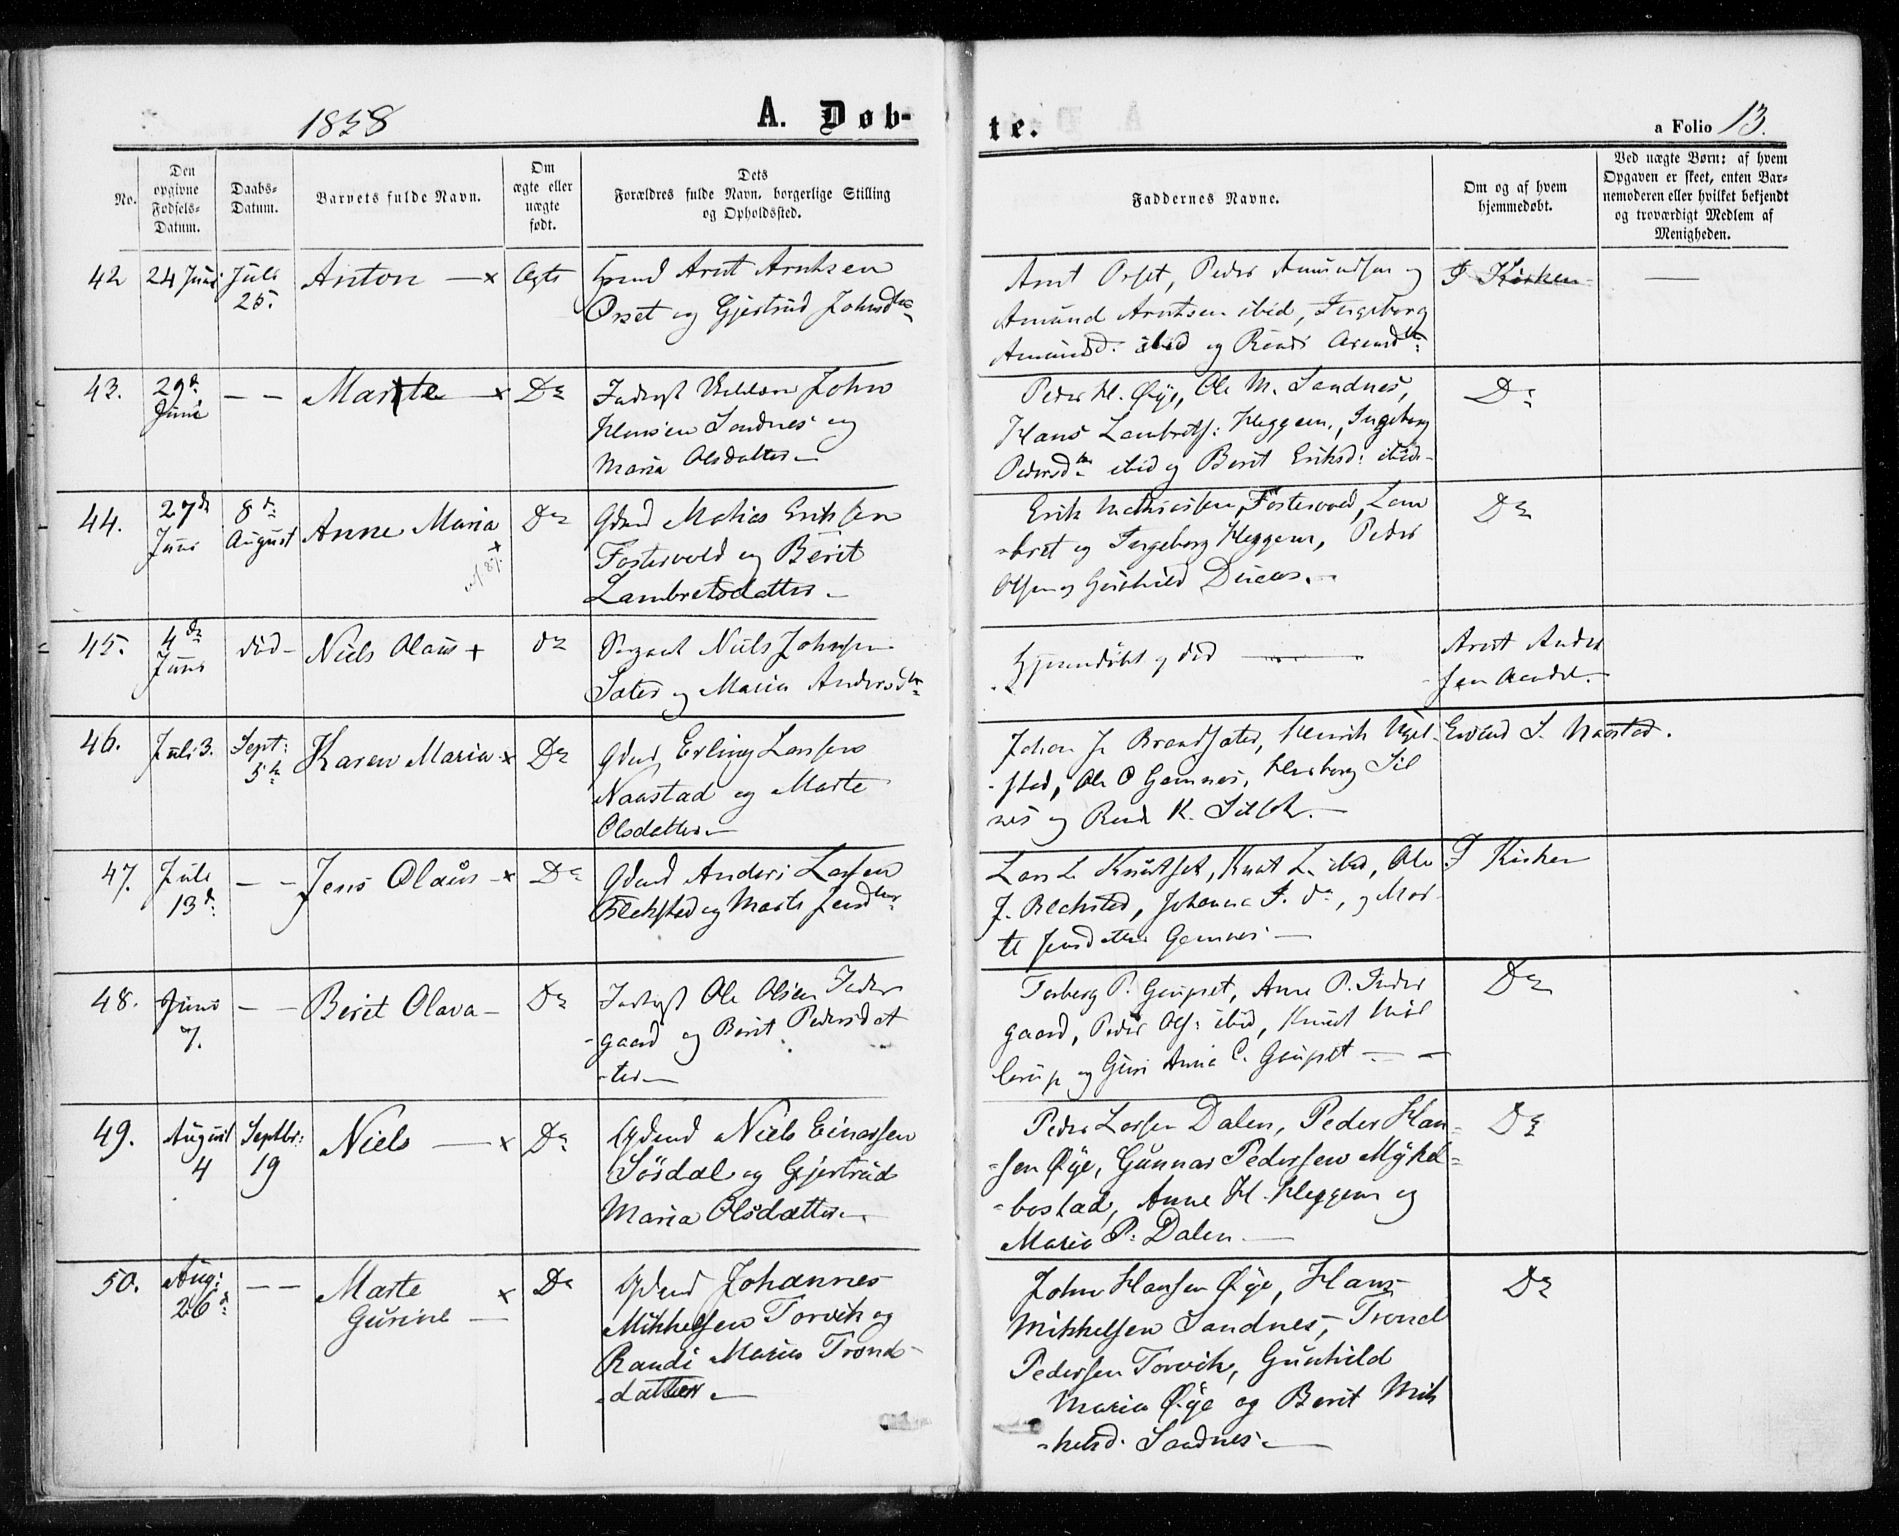 1858
A. Døb-
te.
a Folio 13.
No.
Den opgivne Fødsels-Datum.
Daabs-Datum.
Barnets fulde Navn.
Om ægte eller uægte født.
Dets Forældres fulde Navn, borgerlige Stilling og Opholdssted.
Faddernes Navne.
Om og af hvem hjemmedøbt.
Ved uægte Børn: af hvem Opgaven er skeet, enten Barnemoderen eller hvilket bekjendt og troværdigt Medlem af Menigheden.
42 24 Juni Juli 25. Anton — x Ægte
Arnt Arntsen
Orset og Gjertrud Johnsdtr
Arnt Orset, Peder Amundsen og
Amund Arntsen ibid, Ingeborg
Amundsd. ibid og
I Kirken —
43. 29d Juni — — Marte — x Do
Inderst John
Hansen Sandnes og
Maria Olsdatter —
Peder H. Øye, Ole M. Sandnes,
Hans Lambrets: Heggem, Ingeborg
Pedersdtr ibid og Berit Eriksd: ibid —
Do
44. 27de Juni 8de August Anne Maria x Do
Gdmd Mathias Eriksen
Fostervold og Berit
Lambretsdatter —
Erik Mathiassen Fostervold, Lam
-bret og Ingeborg Heggem, Peder
Olsen og Gunhild
Do
45. 4de Juni død — Niels Olaus + do
Niels Johnsen
Sæter og Maria Andersdtr
Hjemmedøbt og død —
Arnt Ander
-sen
46. Juli 3. Sept: 5te Karen Maria x Do
Gdmd Erling Larsen
Naastad og Marte
Olsdatter —
John J. Brandsæter, Henrik
-stad, Ole O Gamnes, Sil
nes og K.
Naastad.
47. Juli 13d: — — Jens Olaus — x Do
Gdmd Anders Larsen
Blekstad og Marte Jensdtr
Lars L. Knutset, Knut L. ibid, Ole
J. Blekstad, Johanna J. do, og Mar-
te Jensdatter Gamnes —
I Kirken
48. Juni 7. — — Berit Olava — Do
Inderst Ole Olsen Inder
-gaard og Berit Pedersdat
-ter —
Torberg P. Gaupset, Anne P. Inder
gaard, Peder Ols: ibid, Knud Møl
lerup og Guri Anne C. Gaupset — —
Do
49. August 4 Septbr: 19 Niels — x Do
Gdmd Niels Einarsen
Søsdal og Gjertrud
Maria Olsdatter —
Peder Larsen Dalen, Peder Han-
-sen Øye, Gunnar Pedersen Mykel-
-bostad, Anne H. Heggem og
Maria P. Dalen —
Do
50. Aug: 26d: — — Marte Gurine — x Do
Gdmd Johannes
Mikkelsen Torvik og
Randi Maria Trond-
-datter —
John Hansen Øye, Hans
Mikkelsen Sandnes, Trond
Pedersen Torvik, Gunhild
Maria Øye og Berit Mik
-kelsd. Sandnes —
Do